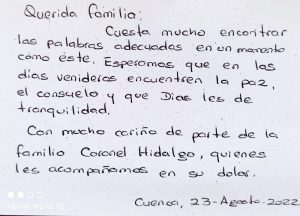 Querida familia:
Cuesta mucho encontrar
las palabras adecuadas en un momento
como éste. Esperamos que en los
días venideros encuentren la paz,
el consuelo y que Dios les de
tranquilidad.
Con mucho cariño de parte de la
familia Coronel Hidalgo, quienes
les acompañamos en su dolor.
Cuenca, 23-Agosto-2022